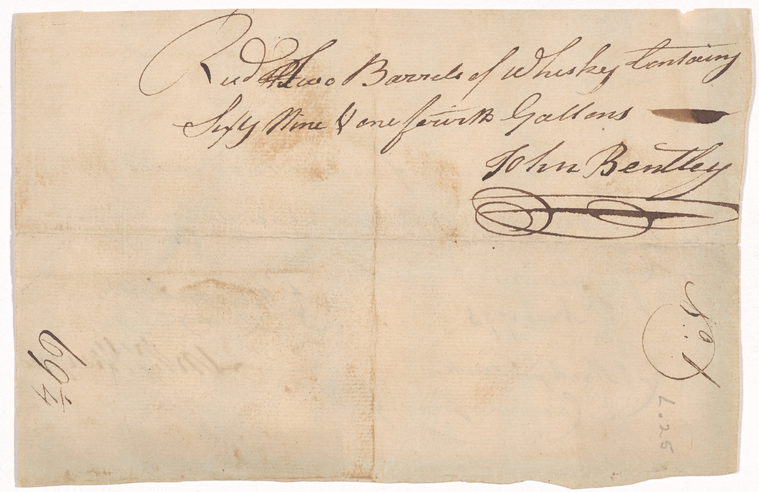 Recd Two Barrels of Whiskey Containg
Sixty Nine & one fourth Gallons
John Bentley
No. 1
69¼
L.25